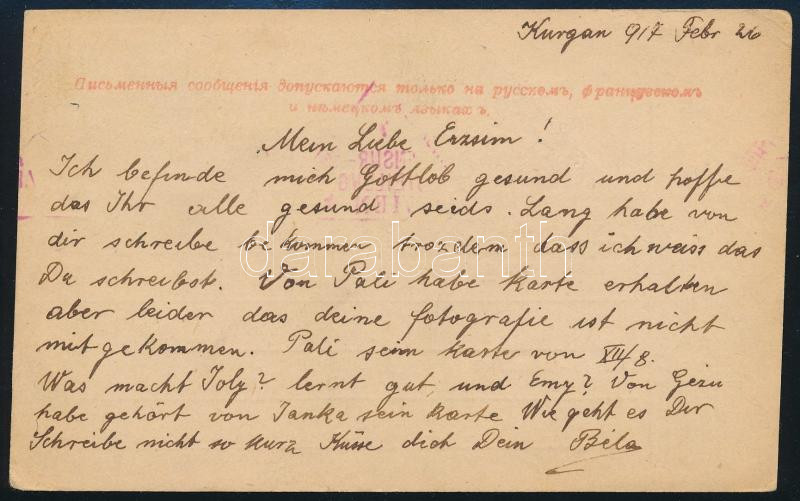 Kurgan 917 Febr 26
Письменныя сообщенія допускаются только на русскомъ, французскомъ
и нѣмецкомъ языкахъ.
Mein Liebe Erzsim!
Ich befinde mich Gottlob gesund und hoffe
das Ihr alle gesund seids. Lang habe von
dir schreibe bekommen trozdem dass ich weiss das
Du schreibst. Von Pali habe Karte erhalten
aber leider das deine fotografie ist nicht
mitgekommen. Pali sein Karte von XII/8.
Was macht Joly? lernt gut, und Emy? Von Gézu
habe gehört von Janka sein Karte Wie geht es Dir
Schreibe nicht so kurz Küsse dich Dein Béla
darabanth